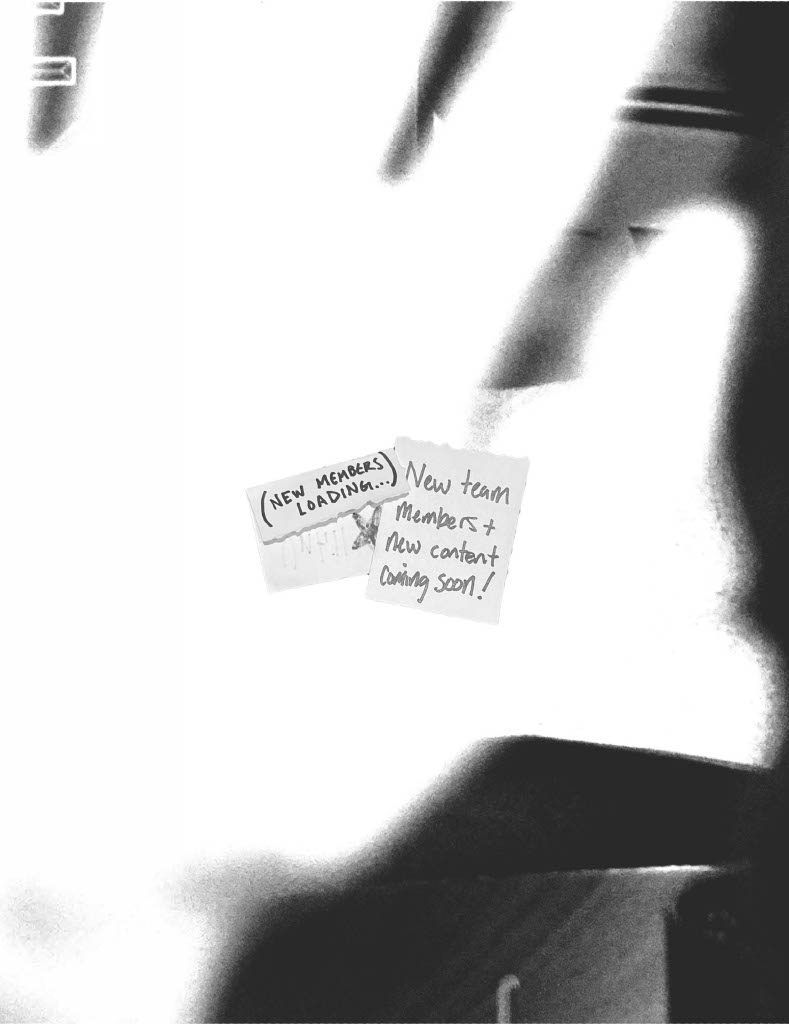 (NEW MEMBERS
LOADING...)
New team
members +
new content
coming soon!